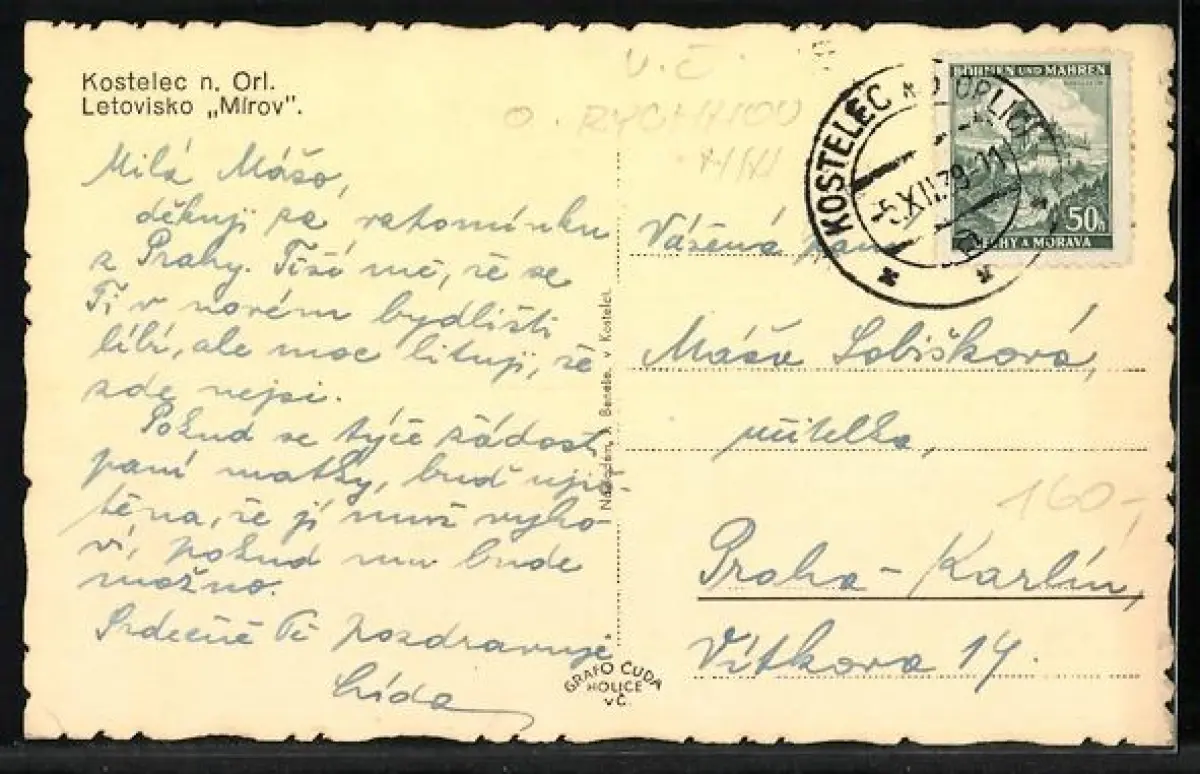 Kostelec n. Orl.
Letovisko „Mírov”.
Milá Mášo,
děkuji za vzpomínku
z Prahy. Těší mě, že se
Ti v novém bydlišti
líbí, ale moc lituji, že
zde nejsi.
Pokud se týče žádosti
paní matky, buď ujiš-
těna, že jí muž vyho-
ví, pokud mu bude
možno.
Srdečně Tě pozdravuje
Lída
Nákladem A. Beneše, v Kostelci.
GRAFO ČUDA
HOLICE
VČ.
V.Č.
O. RYCHNOV
BÖHMEN UND MÄHREN
50h
ČECHY A MORAVA
KOSTELEC N. ORLICÍ
-5.XII.39-11
Vážená paní
Máša Sobišková,
učitelka,
160-,
Praha - Karlín,
Vítkova 14.